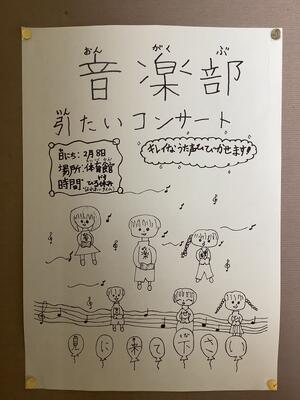 おん がく ぶ
音楽部
いん
引たいコンサート
キレイなうた声ひびかせます!!
日にち:2月8日
場所:体育館
時間:ひる休み
見に来て下さい